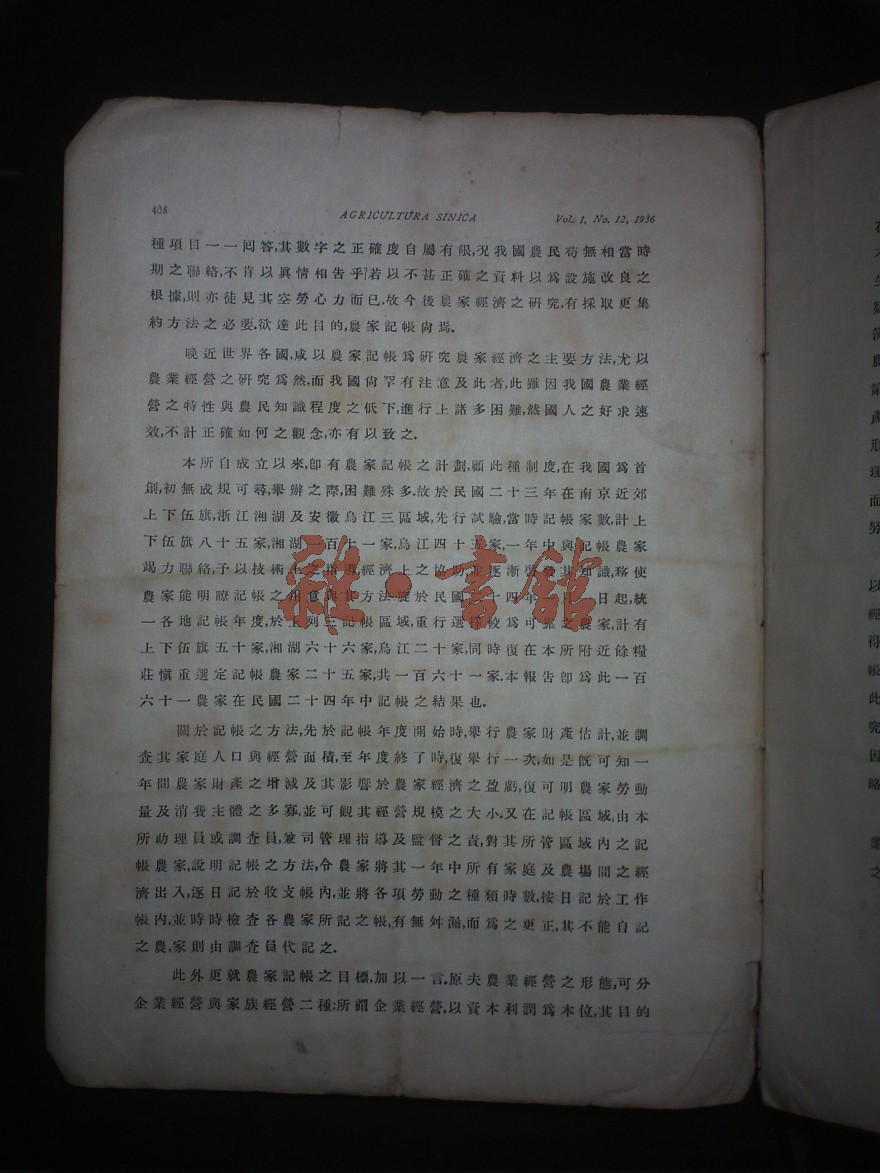 408
AGRICULTURA SINICA
Vol. 1, No. 12, 1936
種項目一一回答,其數字之正確度自屬有限,況我國農民苟無相當時
期之聯絡,不肯以眞情相告乎?若以不甚正確之資料以爲設施改良之
根據,則亦徒見其空勞心力而已.故今後農家經濟之硏究,有採取更集
約方法之必要.欲達此目的,農家記帳尙焉.
晚近世界各國,咸以農家記帳爲硏究農家經濟之主要方法,尤以
農業經營之硏究爲然,而我國尙罕有注意及此者,此雖因我國農業經
營之特性與農民知識程度之低下,進行上諸多困難,然國人之好求速
效,不計正確如何之觀念,亦有以致之.
本所自成立以來,卽有農家記帳之計劃,顧此種制度,在我國爲首
創,初無成規可尋,舉辦之際,困難殊多.故於民國二十三年在南京近郊
上下伍旗,浙江湘湖及安徽烏江三區域,先行試驗,當時記帳家數,計上
下伍旗八十五家,湘湖一百十一家,烏江四十五家,一年中與記帳農家
竭力聯絡,予以技術上之指導,經濟上之協助,並逐漸啓發其知識,務使
農家能明瞭記帳之用意與其方法.旋於民國二十四年 日起,統
一各地記帳年度,於上列三記帳區域,重行選擇較爲可靠之農家,計有
上下伍旗五十家,湘湖六十六家,烏江二十家,同時復在本所附近餘糧
莊愼重選定記帳農家二十五家,共一百六十一家.本報吿卽爲此一百
六十一農家在民國二十四年中記帳之結果也.
關於記帳之方法,先於記帳年度開始時,舉行農家財產估計,並調
查其家庭人口與經營面積,至年度終了時,復舉行一次,如是旣可知一
年間農家財產之增減及其影響於農家經濟之盈虧,復可明農家勞動
量及消費主體之多寡,並可觀其經營規模之大小.又在記帳區域,由本
所助理員或調查員,兼司管理指導及監督之責,對其所管區域內之記
帳農家,說明記帳之方法,令農家將其一年中所有家庭及農場間之經
濟出入,逐日記於收支帳內,並將各項勞動之種類時數,按日記於工作
帳內,並時時檢查各農家所記之帳,有無舛漏,而爲之更正,其不能自記
之農,家則由調查員代記之.
此外更就農家記帳之目標,加以一言.原夫農業經營之形態,可分
企業經營與家族經營二種:所謂企業經營,以資本利潤爲本位,其目的
雜·書館